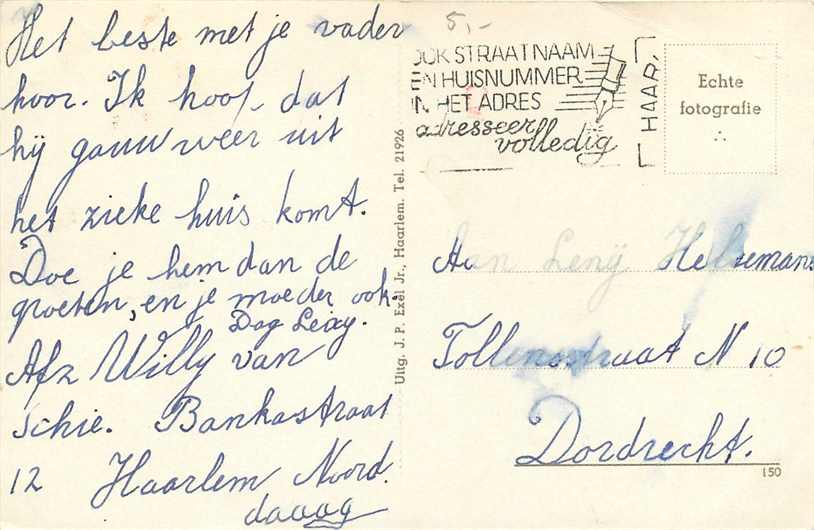 Het beste met je vader
hoor. Ik hoop dat
hij gauw weer uit
het zieke huis komt.
Doe je hem dan de
groeten, en je moeder ook.
Dag Leny.
Afz Willy van
Schie. Bankastraat
12 Haarlem Noord.
daaag
Uitg. J. P. Exel Jr., Haarlem. Tel. 21926
5,-
OOK STRAATNAAM
EN HUISNUMMER
IN HET ADRES
adresseer
volledig
HAAR
Echte
fotografie
Aan Leny
Tollensstraat N 10
Dordrecht.
150